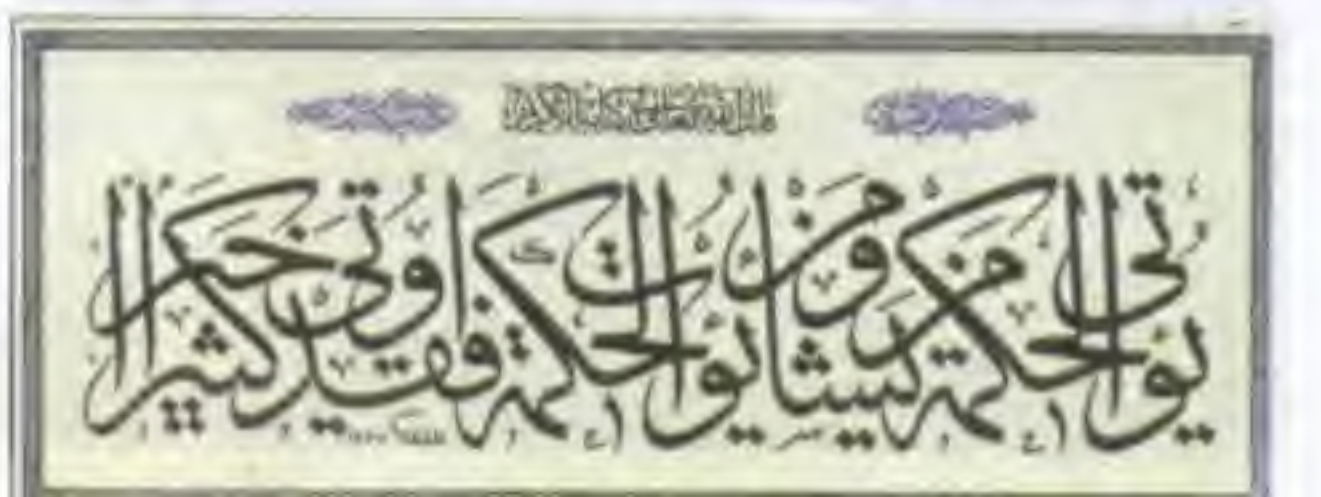 يؤتى الحكمة من يشاء ومن يؤت الحكمة فقد اوتى خيرا كثيرا